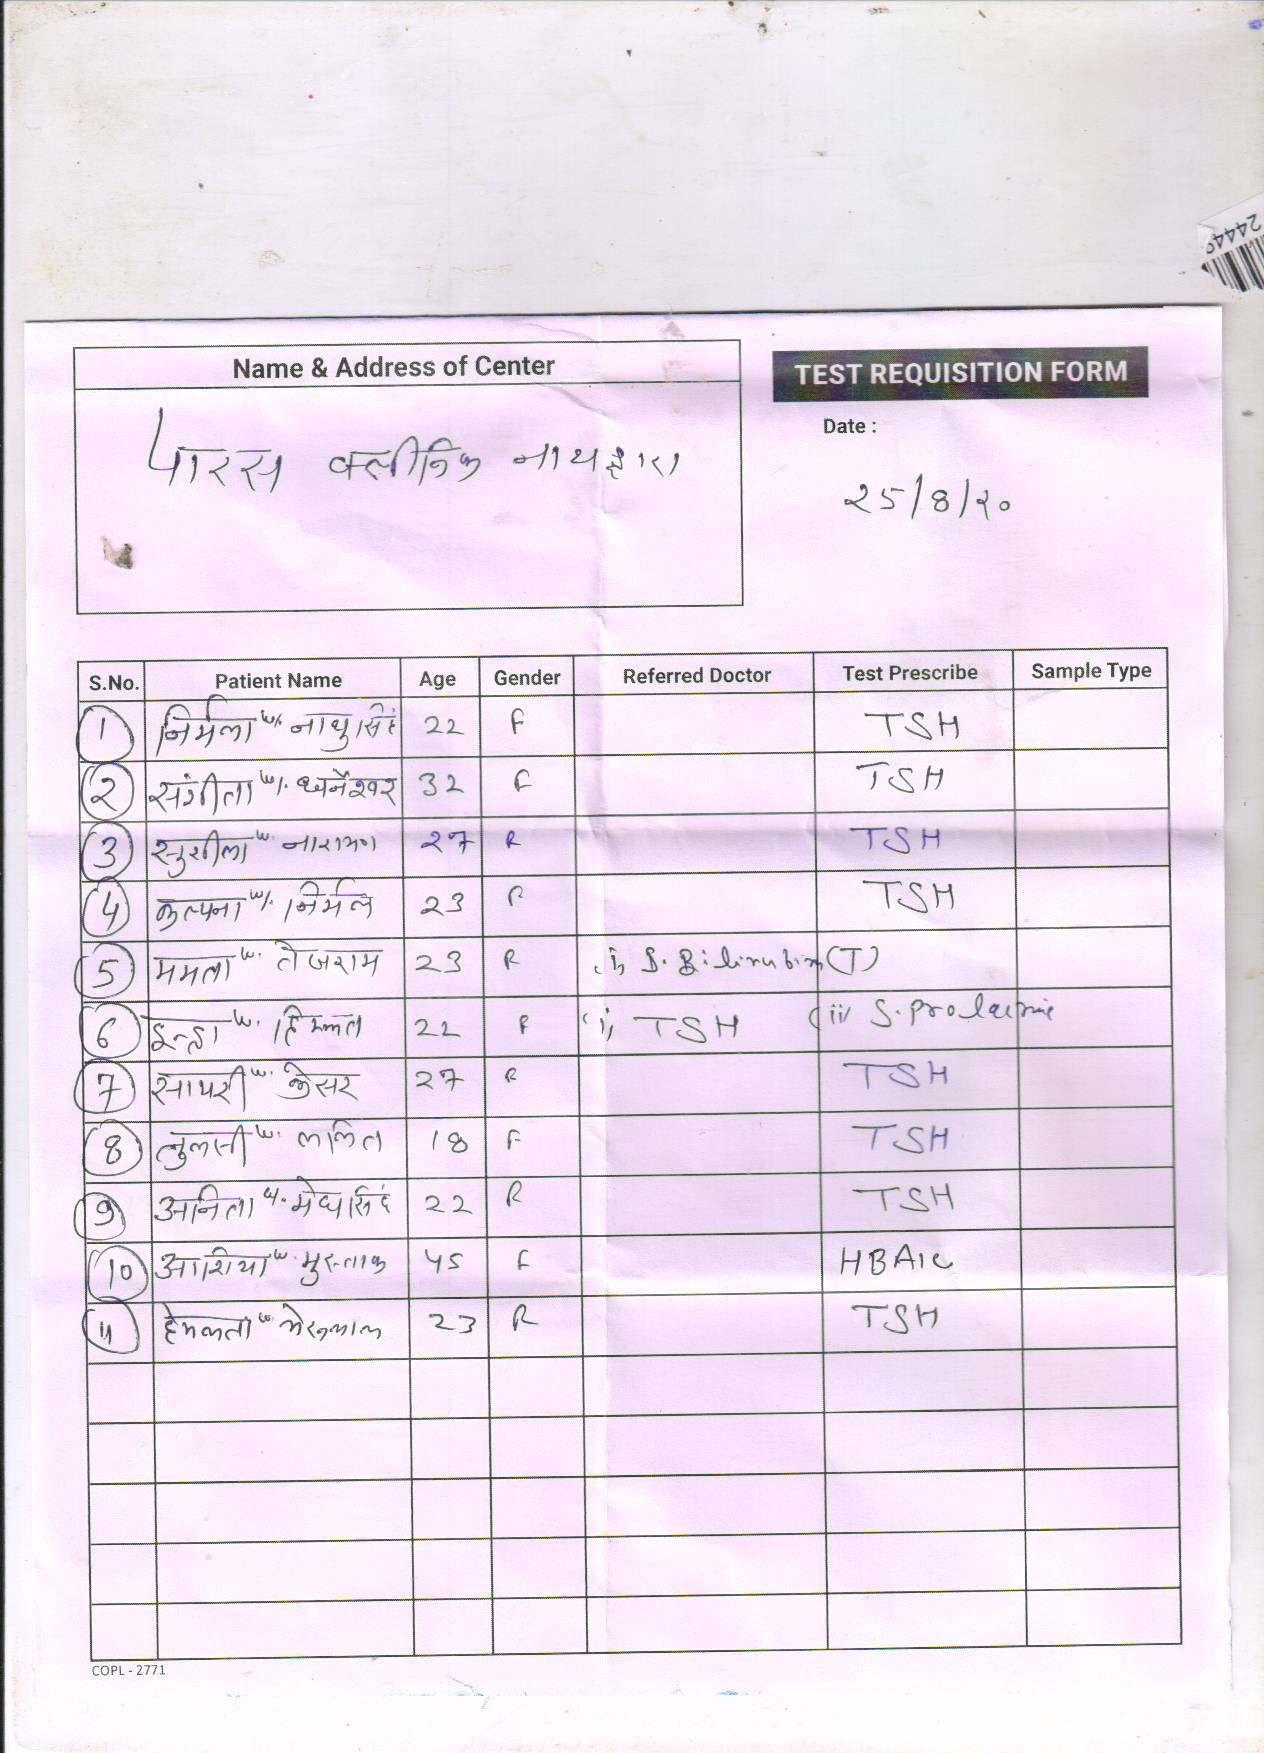 24449
Name & Address of Center
TEST REQUISITION FORM
Date :
पारस क्लीनिक नाथद्वारा
25/8/20
S.No. Patient Name Age Gender Referred Doctor Test Prescribe Sample Type
1 निर्मला w/. नाथुसिंह 22 F TSH
2 संगीता w/. धर्नेश्वर 32 F TSH
3 सुशीला w. नारायण 27 F TSH
4 कल्पना w/. निर्मल 23 F TSH
5 ममता w. तेजाराम 23 F (i) S. Bilirubin (T)
6 इन्द्रा w. हिम्मत 22 F (i) TSH (ii) S. prolactine
7 सायरी w. केसर 27 F TSH
8 तुलसी w. ललित 18 F TSH
9 अनिता w. मेघसिंह 22 F TSH
10 आशिया w. मुस्ताक 45 F HBA1c
11 हेमलता w. भेरूलाल 23 F TSH
COPL - 2771